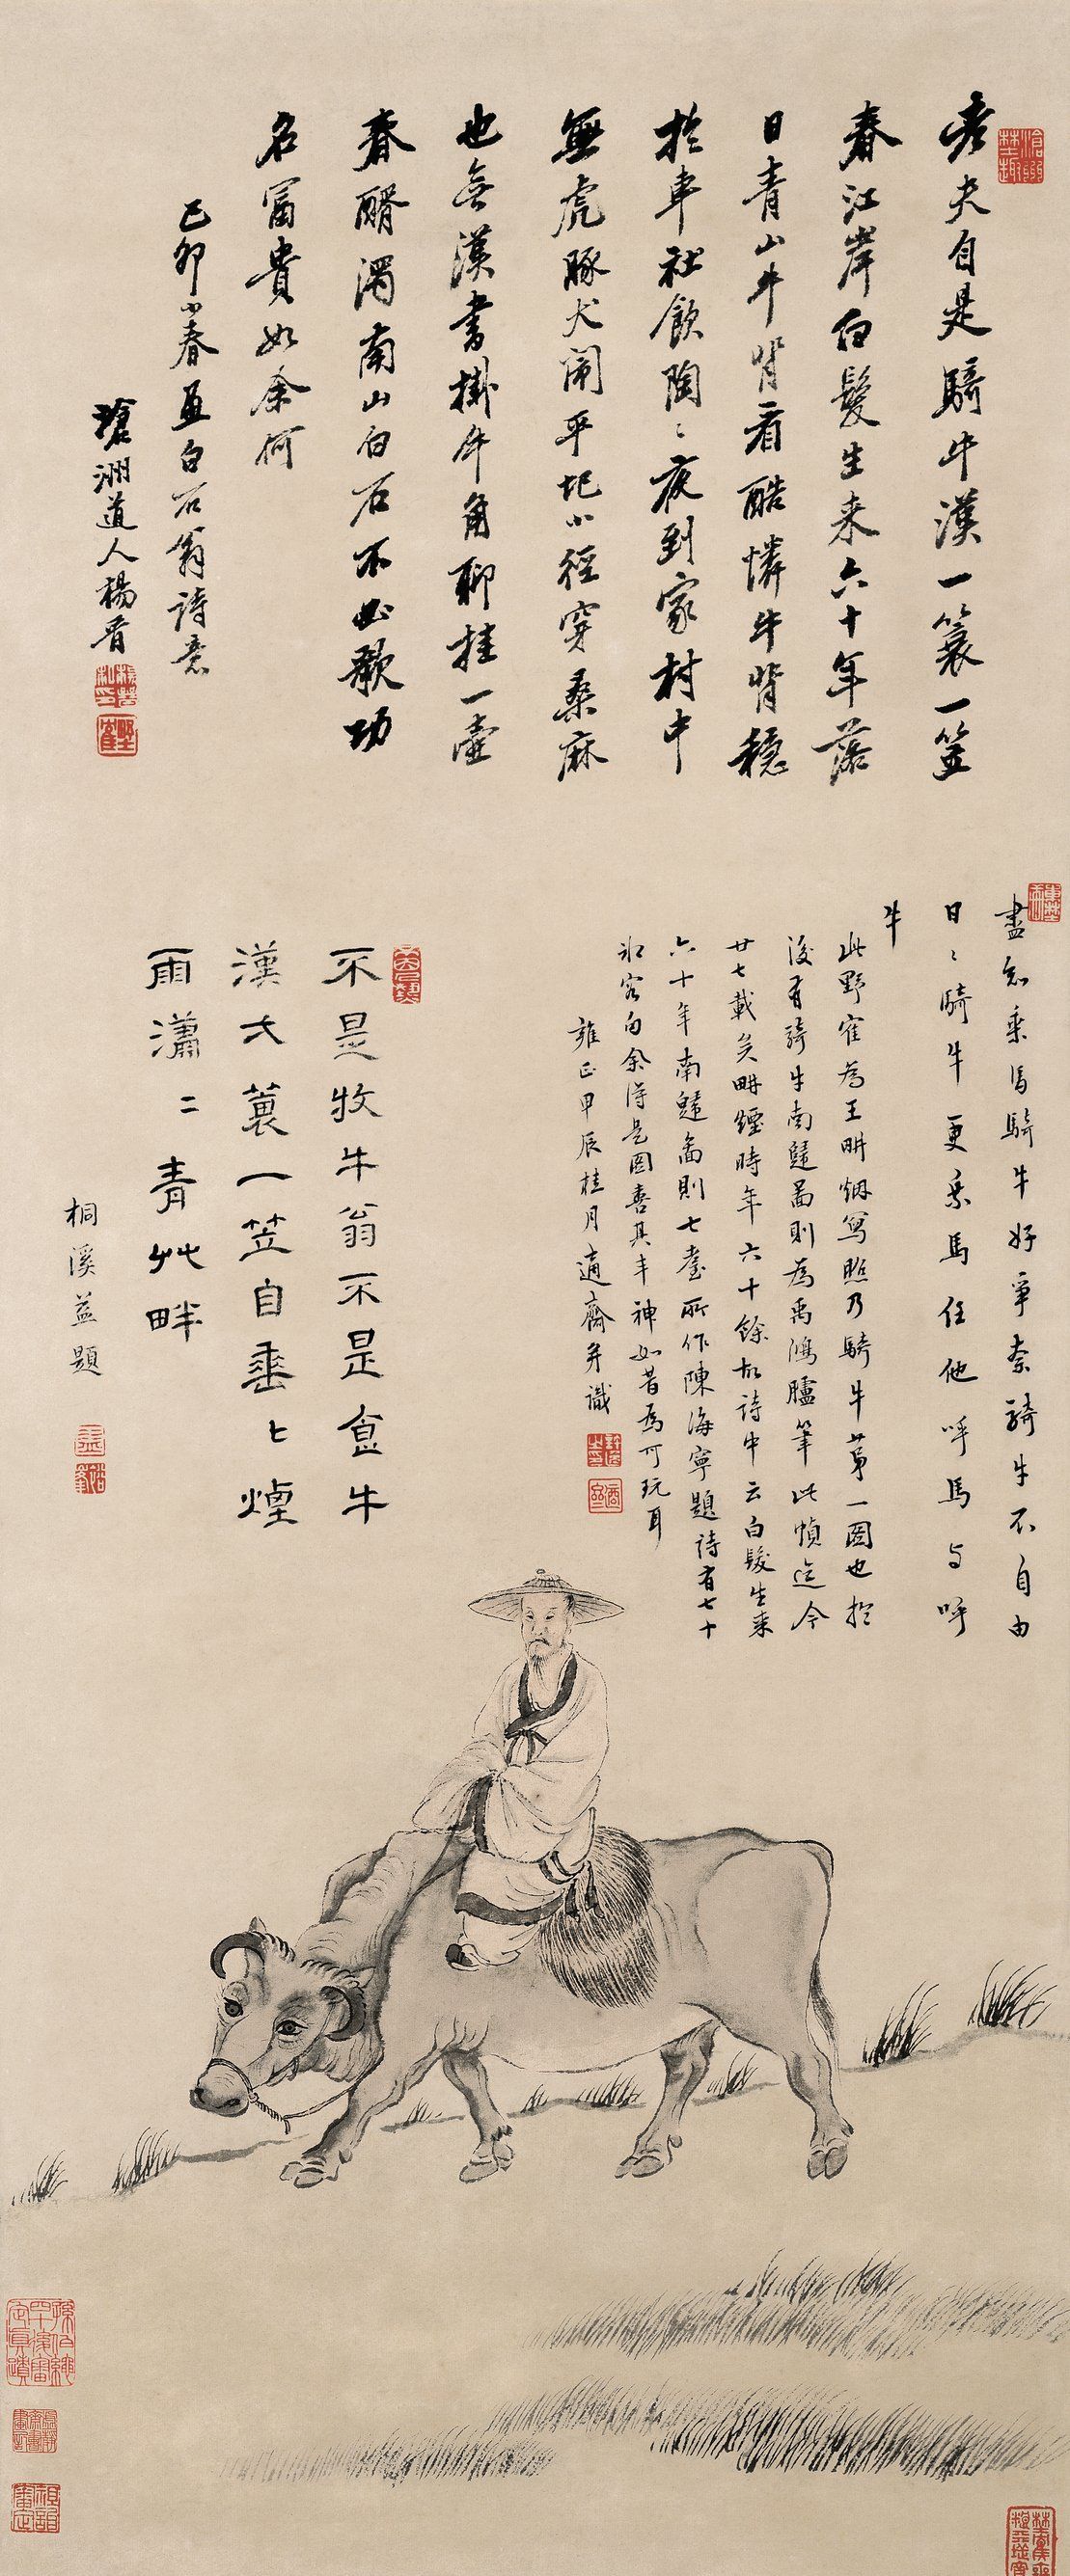 老夫自是騎牛漢一簑一笠
春江岸白髮生来六十年落
日青山牛背看酷憐牛背穩
於車社飲陶〻夜到家村中
無虎豚犬閙平圯小徑穿桑麻
也無漢書掛牛角聊挂一壺
春醑濁南山白石不必歌功
名富貴如余何
己卯小春畫白石翁詩意
滄洲道人楊晋
盡知乘馬騎牛好爭奈騎牛不自由
日〻騎牛更乘馬任他呼馬与呼
牛
此野雀為王畊烟寫照乃騎牛苐一圖也於
後有騎牛南歸圖則為禹鴻臚筆此幀迄今
廿七載矣畊煙時年六十餘故詩中云白髮生来
六十年南歸啚則七耋所作陳海寧題詩有七十
客向余得是圖喜其丰神如昔為可玩耳
雍正甲辰桂月適齋并識
不是牧牛翁不是食牛
漢大蓑一笠自垂〻煙
雨瀟〻青艸畔
桐溪益題